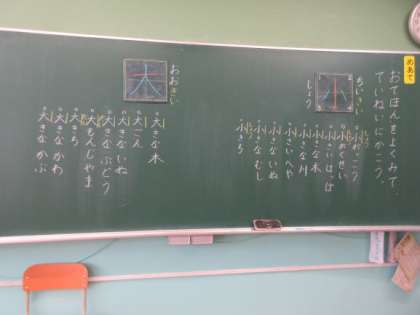 めあて
おてほんをよくみて、
ていねいにかこう。
ちいさい
しょう
小
小がっこう
小がくせい
小さいはっぱ
小さな木
小さな川
小さいへや
小さないぬ
小さなむし
小きち
おおきい
大
大きな木
大こん
大きないぬ
大きなぶどう
大もんじやま
大きち
大きなかわ
大きなかぶ